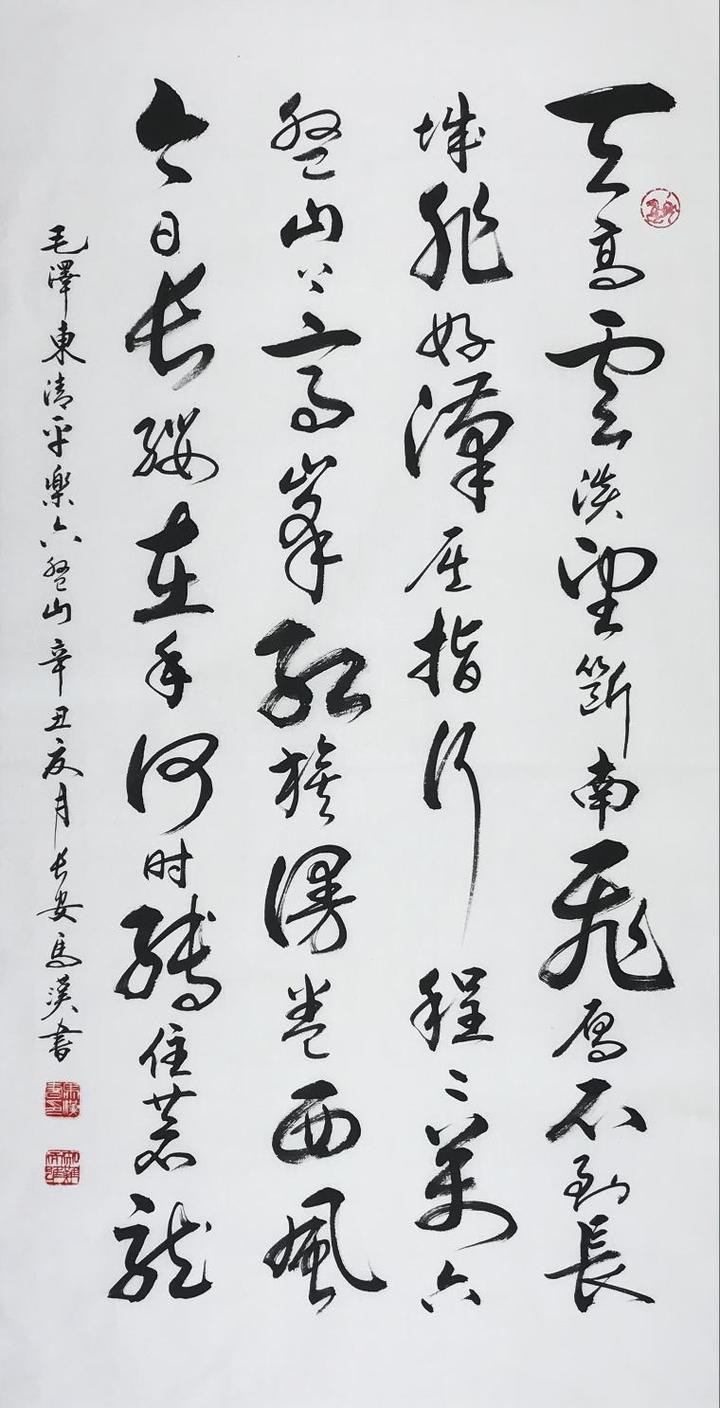 天高雲淡望斷南飛雁不到長
城非好漢屈指行程二萬六
盤山上高峯紅旗漫卷西風
今日長纓在手何时縛住蒼龍
毛澤東清平樂六盤山辛丑夏月長安馬漢書